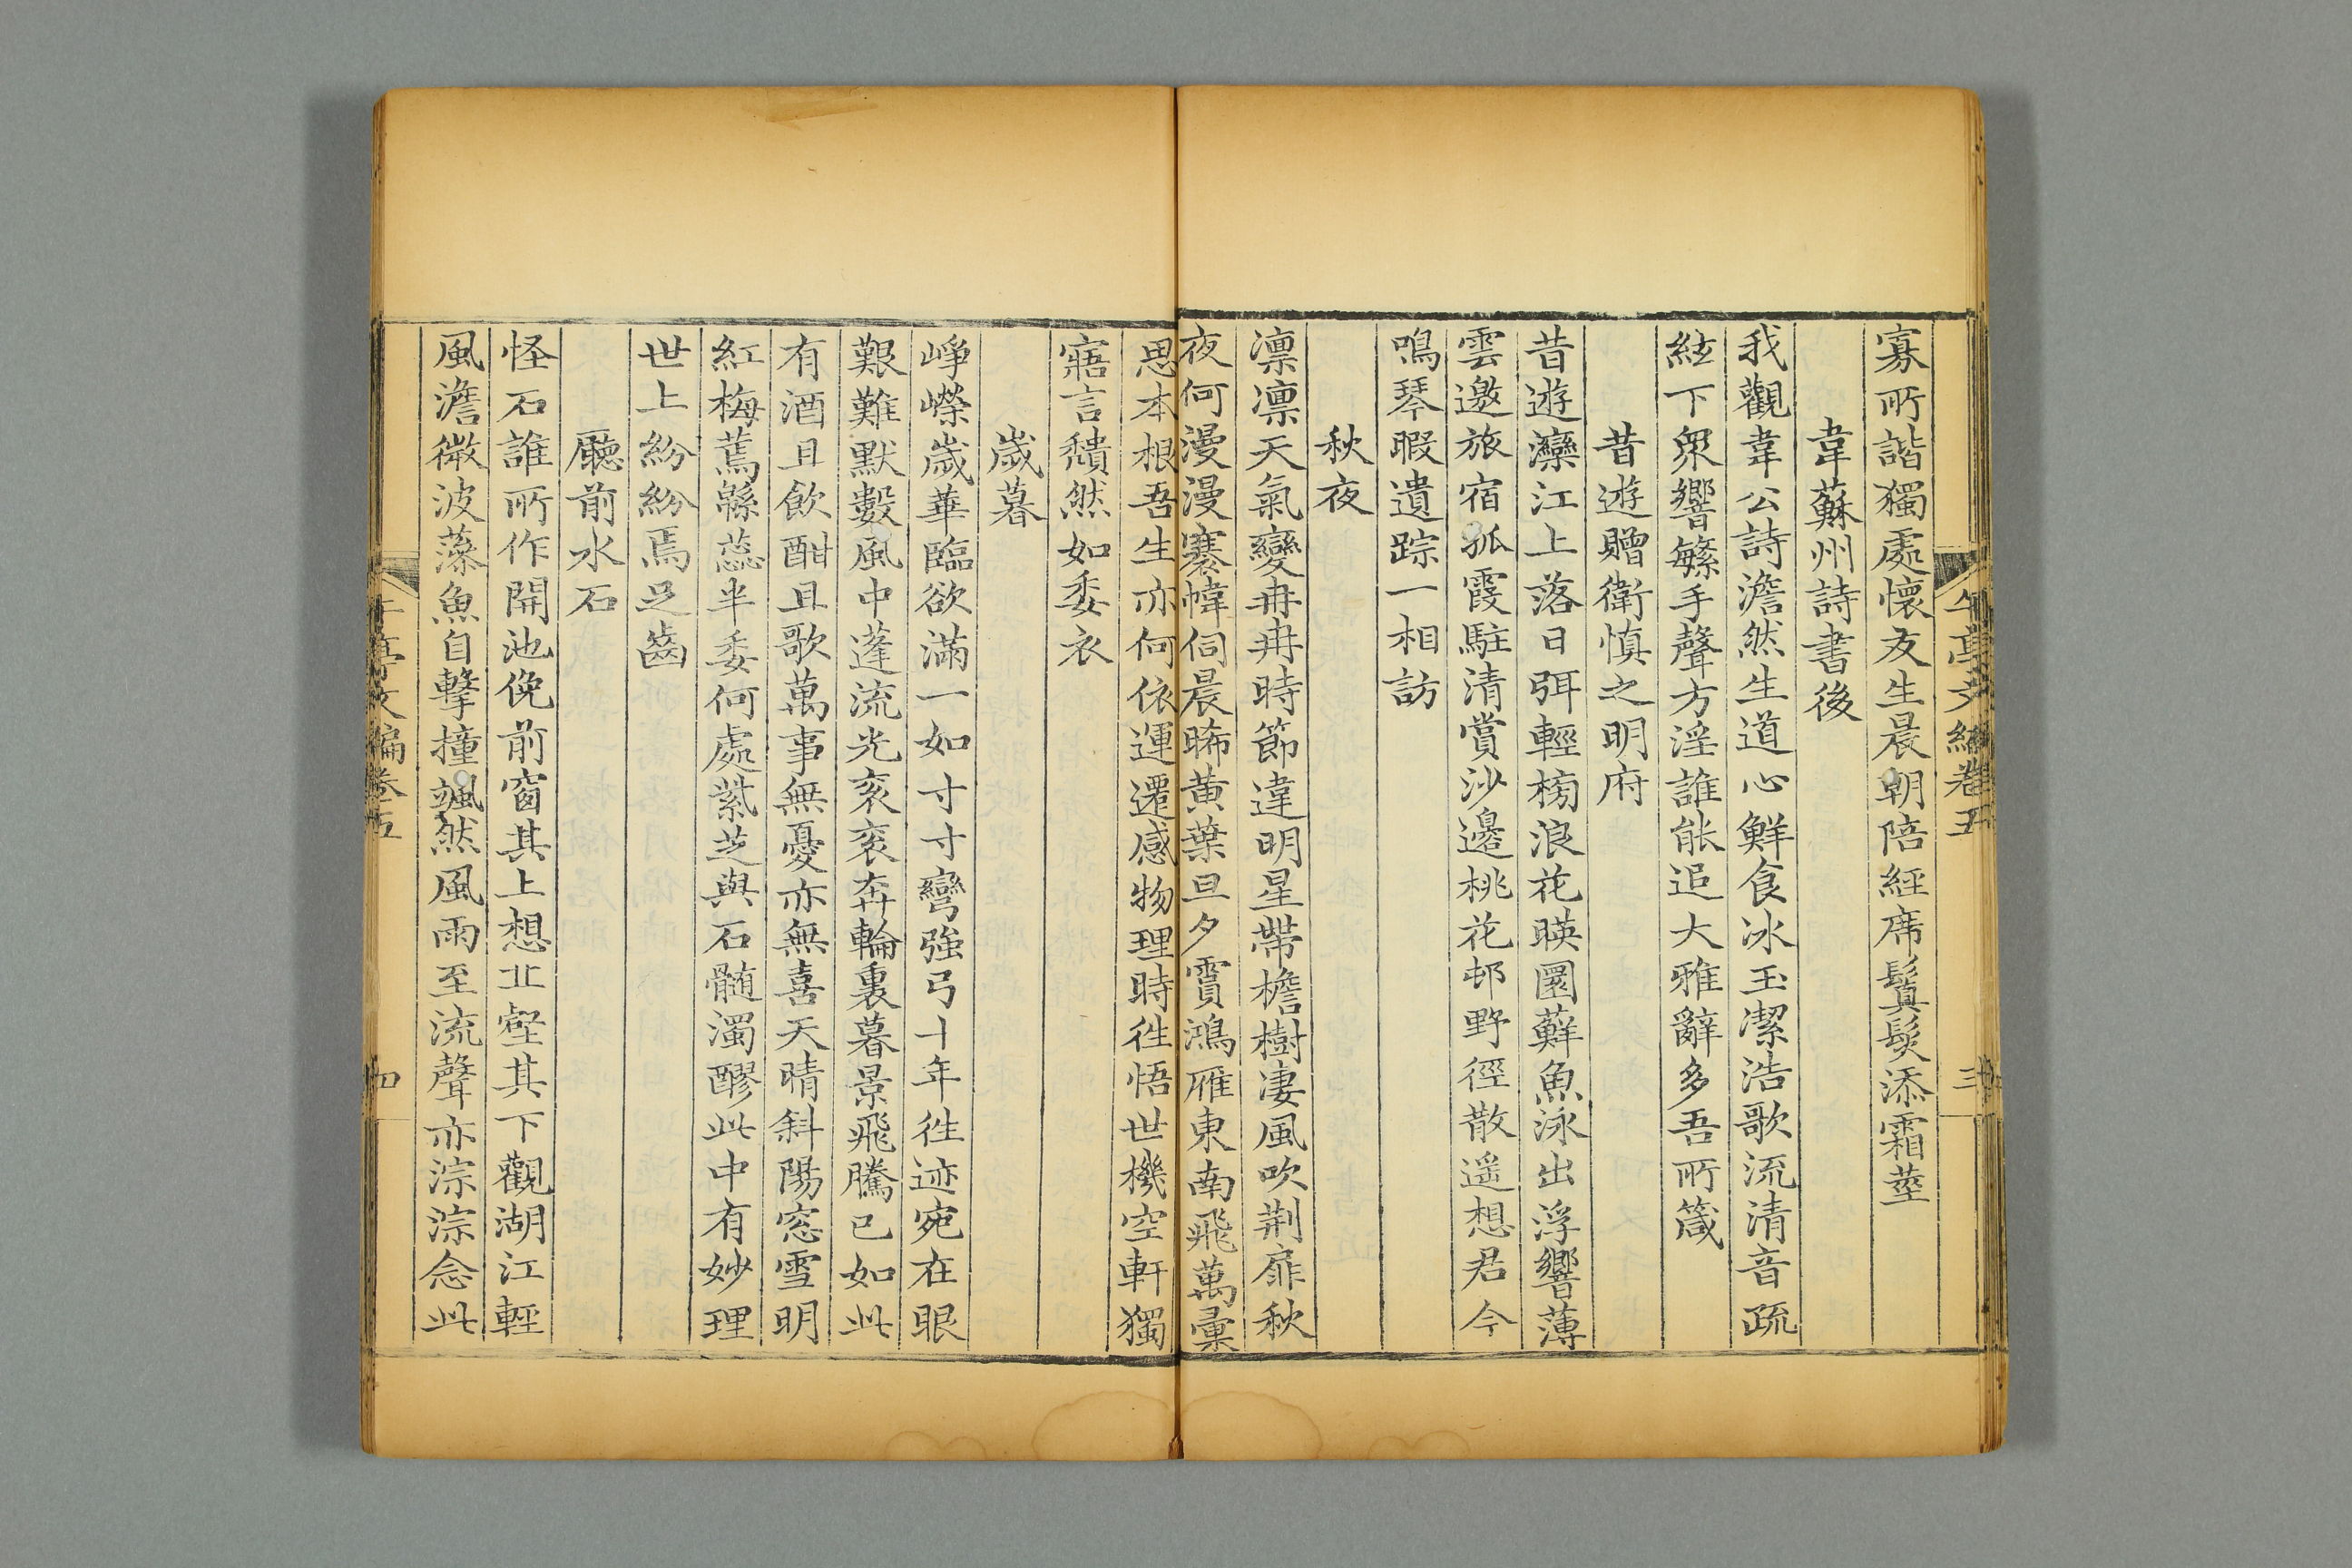 午亭文編卷五
三
寡所諧獨處懷友生晨朝陪經席鬒髮添霜莖
韋蘇州詩書後
我觀韋公詩澹然生道心鮮食冰玉潔浩歌流清音疏
絃下衆響繁手聲方淫誰能追大雅辭多吾所箴
昔遊贈衛慎之明府
昔遊灤江上落日弭輕榜浪花暎圜蘚魚泳出浮響薄
雲邀旅宿孤霞駐清賞沙邊桃花邨野徑散遥想君今
鳴琴暇遺踪一相訪
秋夜
凛凛天氣變冉冉時節違明星帶檐樹凄風吹荆扉秋
夜何漫漫褰幃伺晨晞黄葉旦夕霣鴻雁東南飛萬彙
思本根吾生亦何依運遷感物理時徃悟世機空軒獨
寤言頽然如委衣
歲暮
崢嶸歲華臨欲滿一如寸寸彎強弓十年徃迹宛在眼
艱難默數風中蓬流光衮衮奔輪裏暮景飛騰已如此
有酒且飲酣且歌萬事無憂亦無喜天晴斜陽窓雪明
紅梅蔫緜蕊半委何處紫芝與石髄濁醪此中有妙理
世上紛紛焉足齒
廳前水石
怪石誰所作開池俛前窗其上想丘壑其下觀湖江輕
風澹微波藻魚自擊撞颯然風雨至流聲亦淙淙念此
午亭文編卷五
四